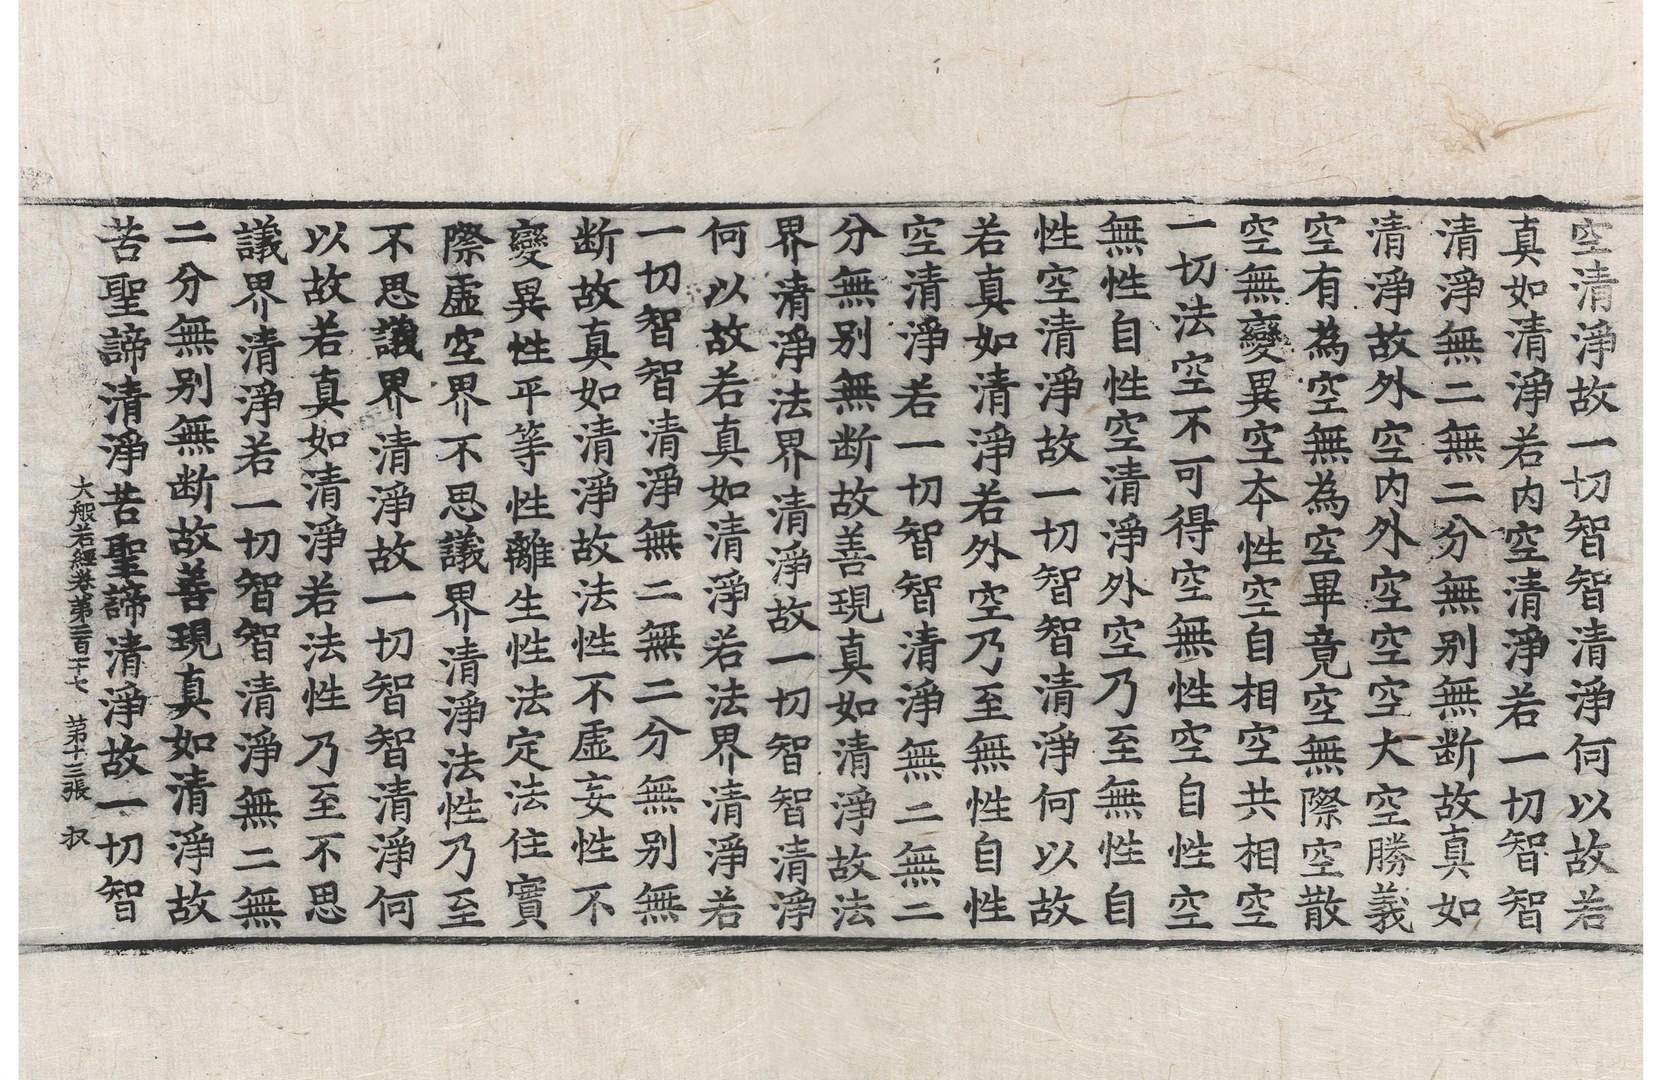 空清淨故一切智智清淨何以故若
真如清淨若内空清淨若一切智智
清淨無二無二分無别無断故真如
清淨故外空内外空空空大空勝義
空有為空無為空畢竟空無際空散
空無變異空本性空自相空共相空
一切法空不可得空無性空自性空
無性自性空清淨外空乃至無性自
性空清淨故一切智智清淨何以故
若真如清淨若外空乃至無性自性
空清淨若一切智智清淨無二無二
分無别無断故善現真如清淨故法
界清淨法界清淨故一切智智清淨
何以故若真如清淨若法界清淨若
一切智智清淨無二無二分無别無
断故真如清淨故法性不虛妄性不
變異性平等性離生性法定法住實
際虛空界不思議界清淨法性乃至
不思議界清淨故一切智智清淨何
以故若真如清淨若法性乃至不思
議界清淨若一切智智清淨無二無
二分無别無断故善現真如清淨故
苦聖諦清淨苦聖諦清淨故一切智
大般若經卷第二百一十七 第十三張 収